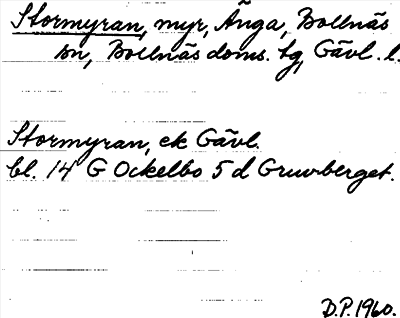 Stormyran, myr, Änga, Bollnäs
sn, Bollnäs doms. tg, Gävl. l.
Stormyran, ek Gävl.
bl. 14 G Ockelbo 5 d Gruvberget.
D.P. 1960.